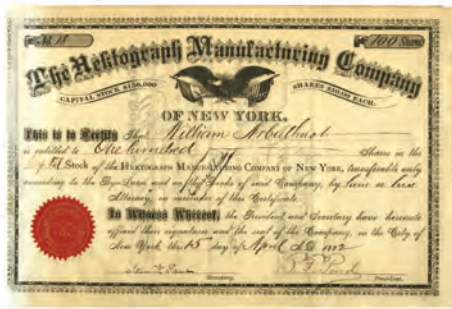 No. 18
100 Shares
The Hektograph Manufacturing Company
CAPITAL STOCK $150,000
SHARES $10.00 EACH.
OF NEW YORK.
This is to Certify that William Arbuthnot
is entitled to One hundred Shares in the
Stock of the HEKTOGRAPH MANUFACTURING COMPANY OF NEW YORK, transferable only
according to the By-Laws and on the Books of said Company, by him or his
Attorney, on surrender of this Certificate.
In Witness Whereof, the President and Secretary have hereunto
affixed their signatures and the seal of the Company, in the City of
New York this 15 day of April AD 1882
Secretary.
President.